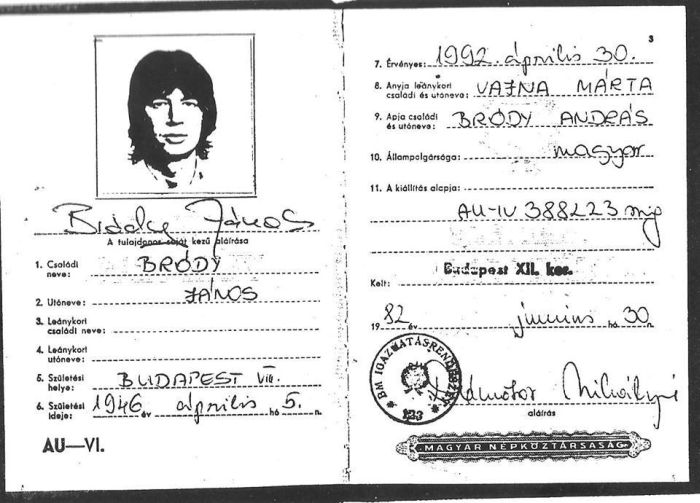 Bródy János
A tulajdonos saját kezű aláírása
1. Családi
neve: BRÓDY
2. Utóneve: JÁNOS
3. Leánykori
családi neve:
4. Leánykori
utóneve:
5. Születési
helye: BUDAPEST VIII.
6. Születési
ideje: 1946 év április hó 5. n.
AU—VI.
3
7. Érvényes: 1992. április 30.
8. Anyja leánykori
családi és utóneve: VAJNA MÁRTA
9. Apja családi
és utóneve: BRÓDY ANDRÁS
10. Állampolgársága: magyar
11. A kiállítás alapja:
AU-IV 388223 szig
Budapest XII. ker.
Kelt:
1982 év június hó 30 n.
BM IGAZGATÁSRENDÉSZET
123
Mihályné
aláírás
MAGYAR NÉPKÖZTÁRSASÁG